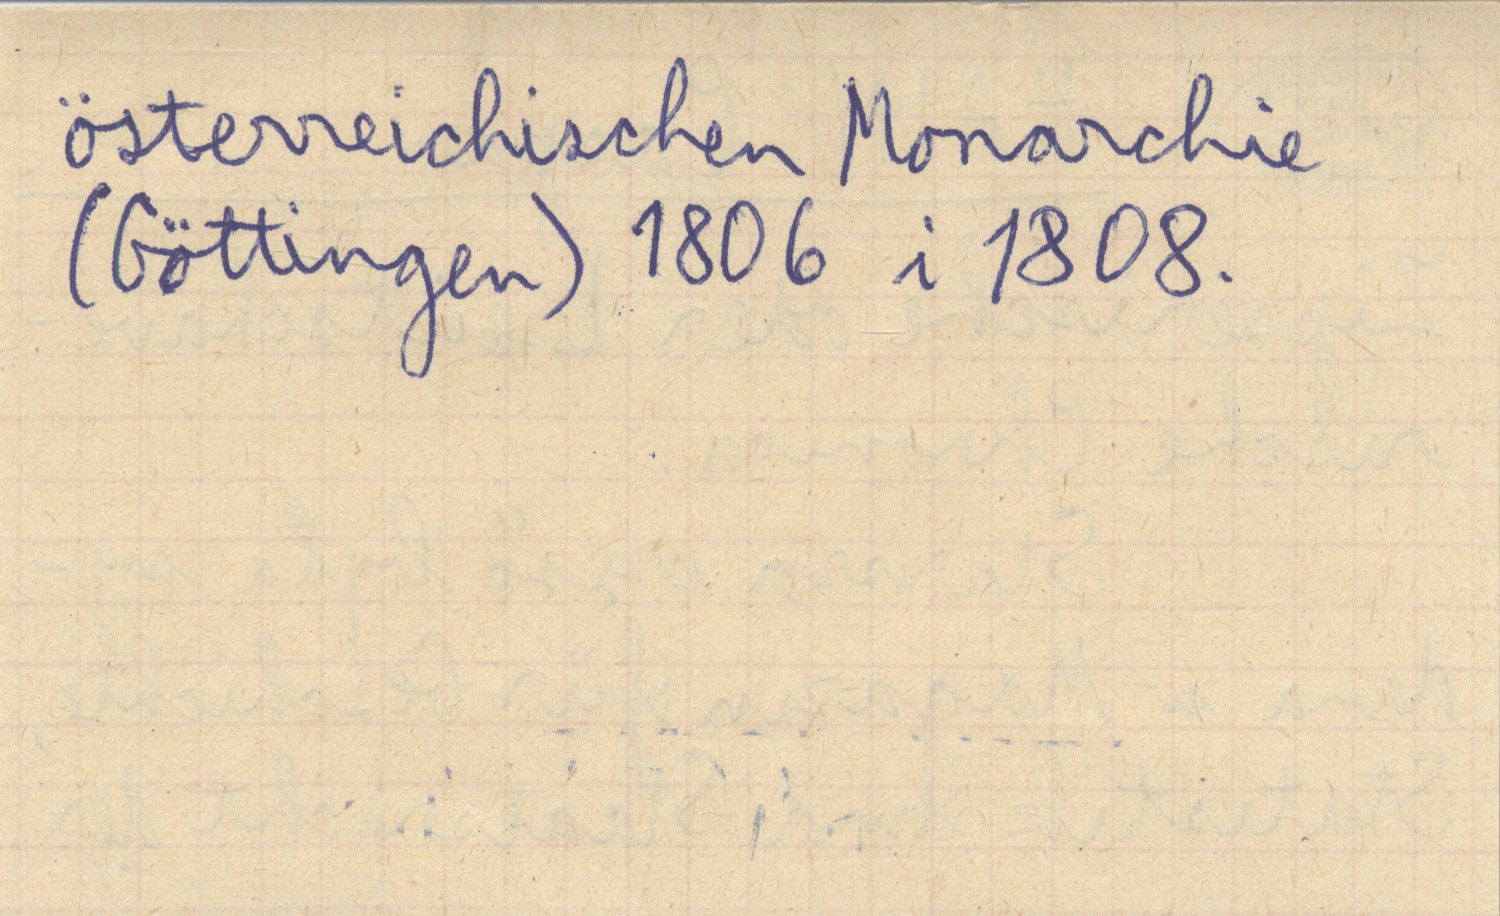 österreichischen Monarchie
(Göttingen) 1806 i 1808.